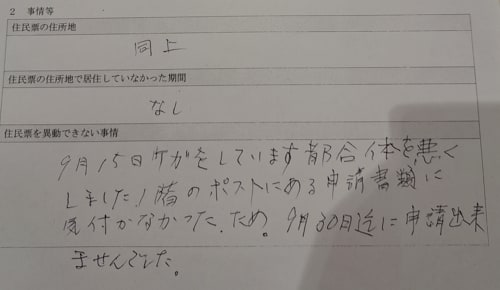 2 事情等
住民票の住所地
同上
住民票の住所地で居住していなかった期間
なし
住民票を異動できない事情
9月15日ケガをしています都合体を悪く
しました1階のポストにある申請書類に
気付かなかった、ため。9月30日迄に申請出来
ませんでした。